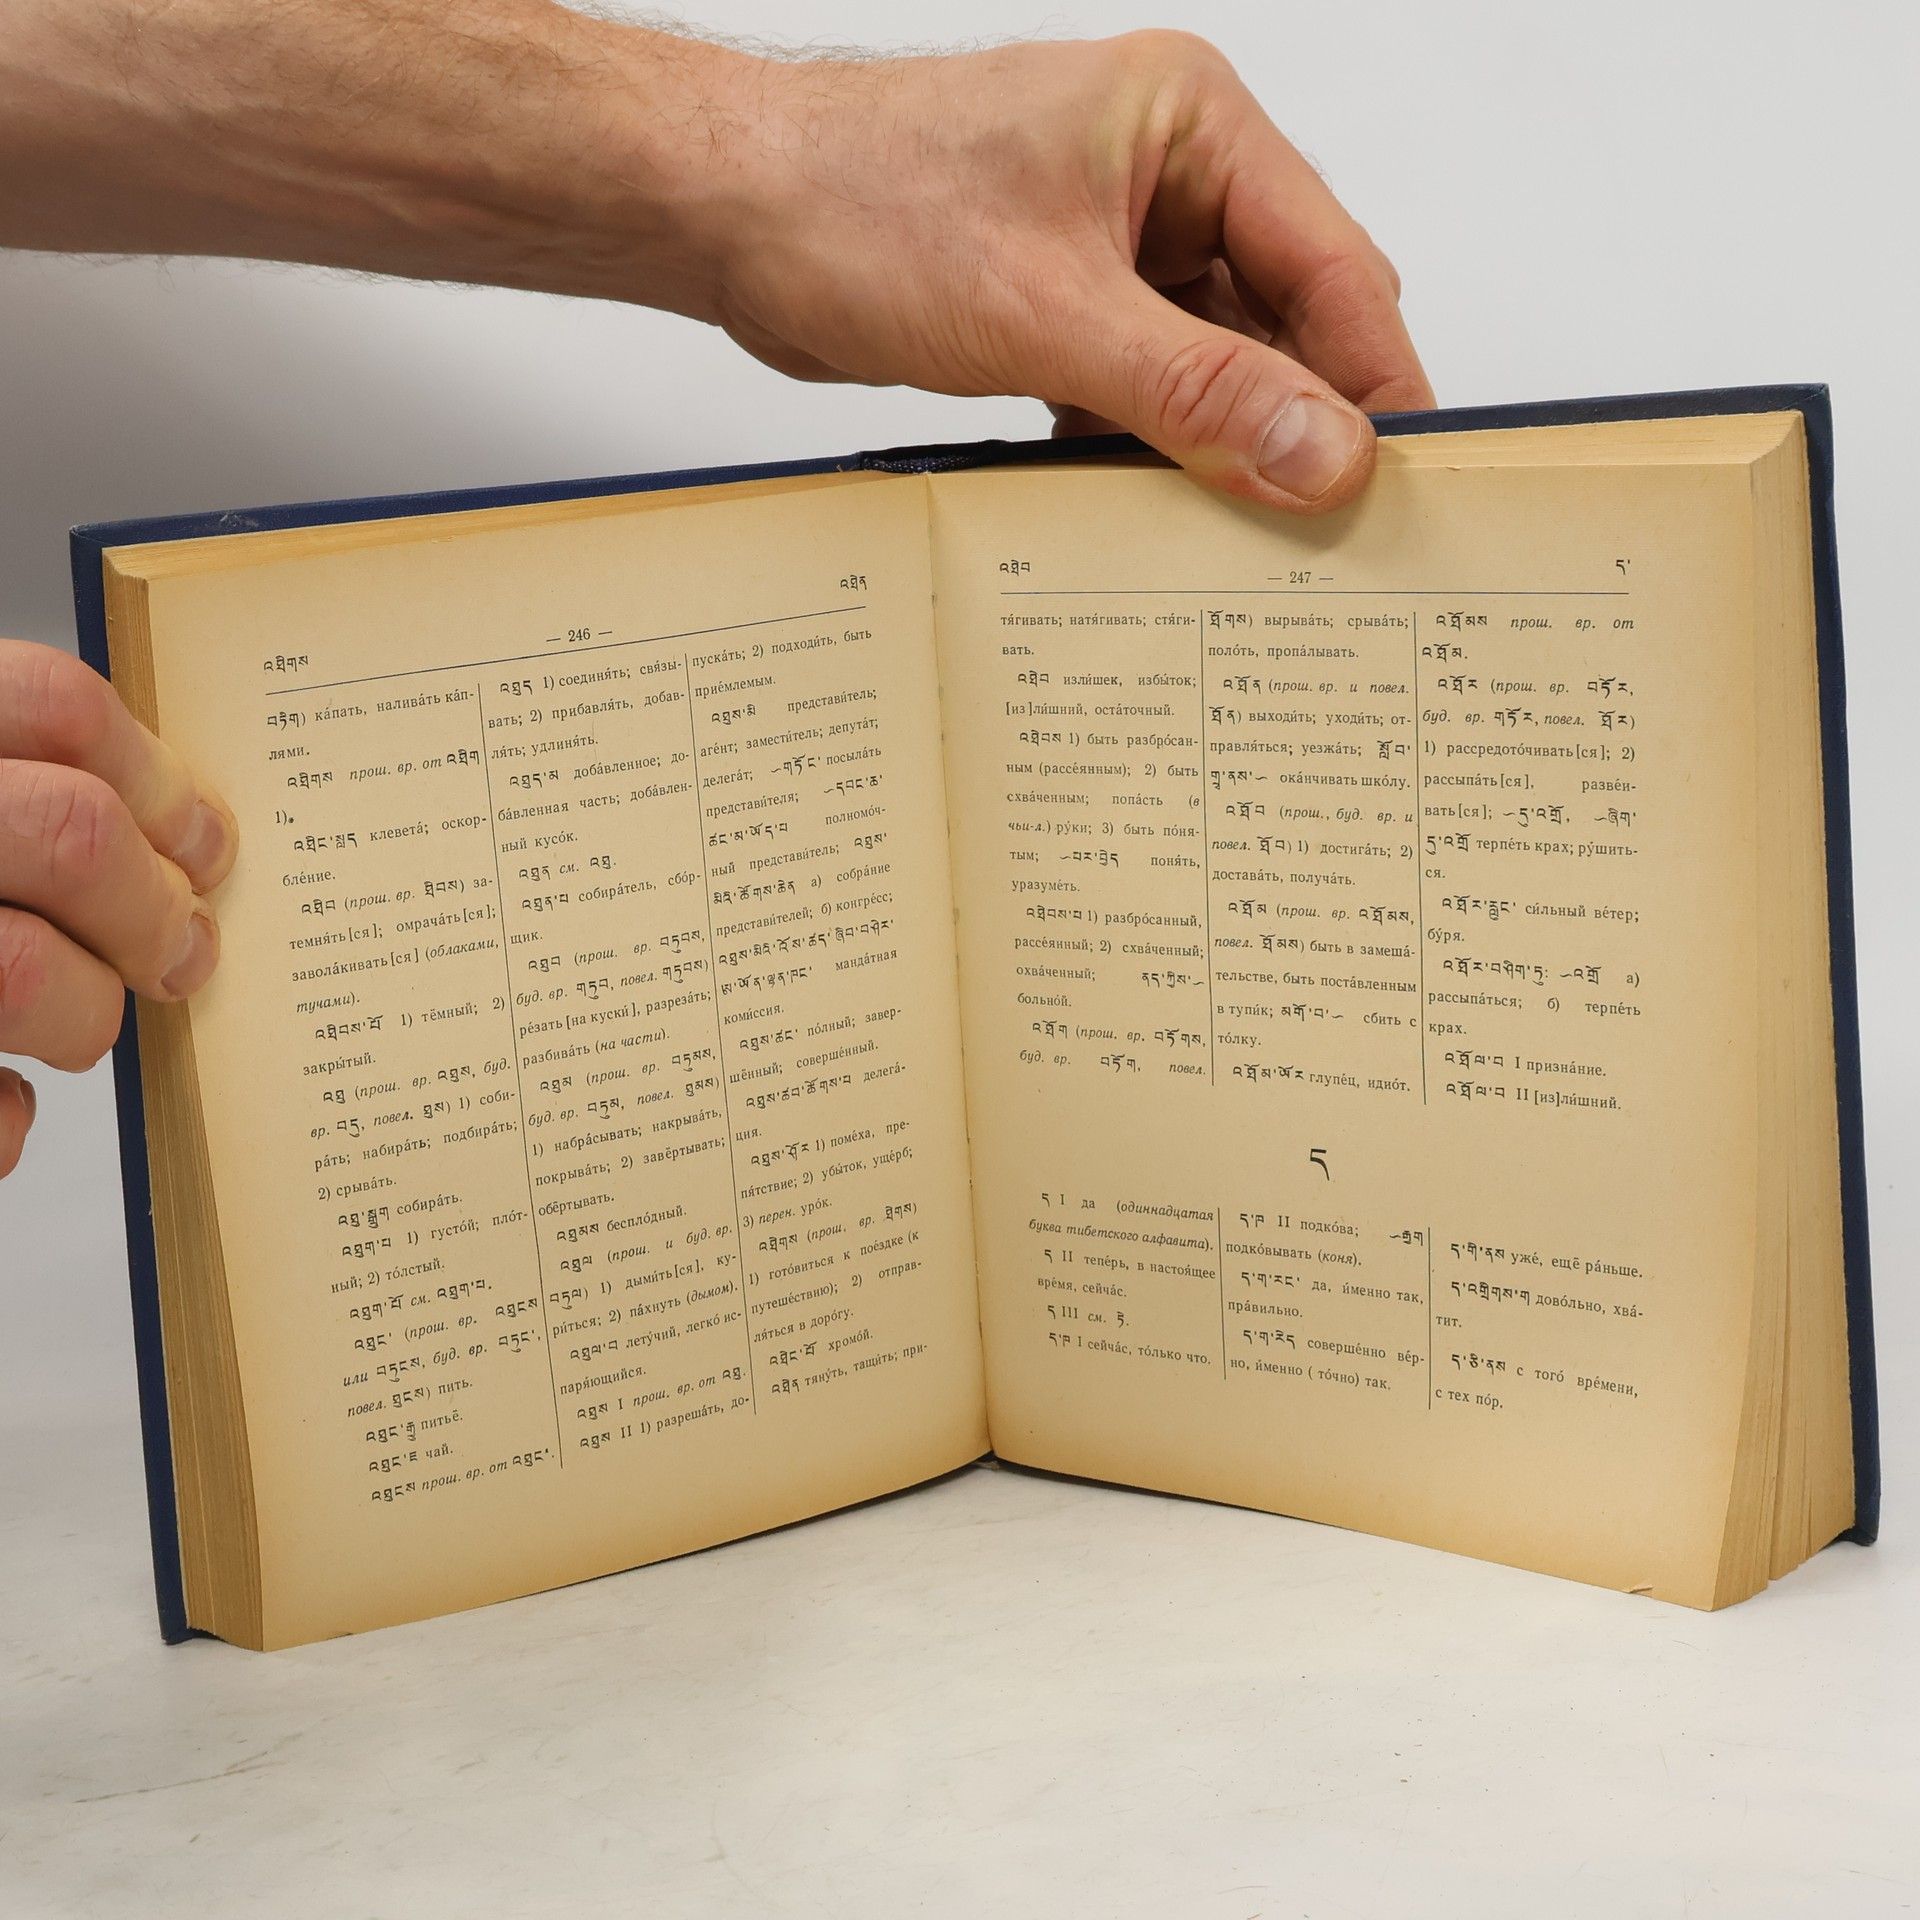 འཐིགས
— 246 —
འཐེན
བཏིག) ка́пать, налива́ть ка́п-
лями.
འཐིགས прош. вр. от འཐིག
1).
འཐིང་སླད клевета́; оскор-
бле́ние.
འཐིབ (прош. вр. ཐིབས) за-
темня́ть[ся]; омрача́ть[ся];
завола́кивать[ся] (облаками,
тучами).
འཐིབས་པོ 1) тёмный; 2)
закры́тый.
འཐུ (прош. вр. འཐུས, буд.
вр. བཏུ, повел. ཐུས) 1) соби-
ра́ть; набира́ть; подбира́ть;
2) срыва́ть.
འཐུ་སྒྲུག собира́ть.
འཐུག་པ 1) густо́й; пло́т-
ный; 2) то́лстый.
འཐུག་པོ см. འཐུག་པ.
འཐུང་ (прош. вр. འཐུངས
или བཏུངས, буд. вр. བཏུང་,
повел. ཐུངས) пить.
འཐུང་རྒྱུ питьё.
འཐུང་ཇ чай.
འཐུངས прош. вр. от འཐུང་.
འཐུད 1) соединя́ть; свя́зы-
вать; 2) прибавля́ть, добав-
ля́ть; удлиня́ть.
འཐུད་མ доба́вленное; до-
ба́вленная часть; доба́влен-
ный кусо́к.
འཐུན см. འཐུ.
འཐུན་པ собира́тель, сбо́р-
щик.
འཐུབ (прош. вр. བཏུབས,
буд. вр. གཏུབ, повел. གཏུབས)
ре́зать [на куски́], разреза́ть;
разбива́ть (на части).
འཐུམ (прош. вр. བཏུམས,
буд. вр. བཏུམ, повел. ཐུམས)
1) набра́сывать; накрыва́ть,
покрыва́ть; 2) завёртывать;
обёртывать.
འཐུམས беспло́дный.
འཐུལ (прош. и буд. вр.
བཏུལ) 1) дыми́ть[ся], ку-
ри́ться; 2) па́хнуть (дымом).
འཐུལ་བ лету́чий, легко́ ис-
паря́ющийся.
འཐུས I прош. вр. от འཐུ.
འཐུས II 1) разреша́ть, до-
пуска́ть; 2) подходи́ть, быть
прие́млемым.
འཐུས་མི представи́тель;
аге́нт; замести́тель; депута́т;
делега́т; ~གཏོང་ посыла́ть
представи́теля; ~དབང་ཆ་
ཚང་མ་ཡོད་པ полномо́ч-
ный представи́тель; འཐུས་
མིའི་ཚོགས་ཆེན а) собра́ние
представи́телей; б) конгре́сс;
འཐུས་མིའི་འོས་ཚད་ཞིབ་བཤེར་
ཨུ་ཡོན་ལྷན་ཁང་ манда́тная
коми́ссия.
འཐུས་ཚང་ по́лный; завер-
шённый; соверше́нный.
འཐུས་ཚབ་ཚོགས་པ делега́-
ция.
འཐུས་ཤོར 1) поме́ха, пре-
пя́тствие; 2) убы́ток, уще́рб;
3) перен. уро́к.
འཐེགས (прош. вр. ཐེགས)
1) гото́виться к пое́здке (к
путеше́ствию); 2) отправ-
ля́ться в доро́гу.
འཐེང་པོ хромо́й.
འཐེན тяну́ть, тащи́ть; при-
འཐེབ
— 247 —
ད་
тя́гивать; натя́гивать; стя́ги-
вать.
འཐེབ изли́шек, избы́ток;
[из]ли́шний, оста́точный.
འཐེབས 1) быть разбро́сан-
ным (рассе́янным); 2) быть
схва́ченным; попа́сть (в
чьи-л.) ру́ки; 3) быть по́ня-
тым; ~པར་བྱེད поня́ть,
уразуме́ть.
འཐེབས་པ 1) разбро́санный,
рассе́янный; 2) схва́ченный;
охва́ченный; ནད་ཀྱིས་~
больно́й.
འཐོག (прош. вр. བཏོགས,
буд. вр. བཏོག, повел.
ཐོགས) вырыва́ть; срыва́ть;
поло́ть, пропа́лывать.
འཐོན (прош. вр. и повел.
ཐོན) выходи́ть; уходи́ть; от-
правля́ться; уезжа́ть; སློབ་
གྲྭ་ནས་~ ока́нчивать шко́лу.
འཐོབ (прош., буд. вр. и
повел. ཐོབ) 1) достига́ть; 2)
достава́ть, получа́ть.
འཐོམ (прош. вр. འཐོམས,
повел. ཐོམས) быть в замеша́-
тельстве, быть поста́вленным
в тупи́к; མགོ་བ་~ сбить с
то́лку.
འཐོམ་ཡོར глупе́ц, идио́т.
འཐོམས прош. вр. от
འཐོམ.
འཐོར (прош. вр. བཏོར,
буд. вр. གཏོར, повел. ཐོར)
1) рассредото́чивать[ся]; 2)
рассыпа́ть[ся], разве́и-
вать[ся]; ~དུ་འགྲོ, ~ཞིག་
དུ་འགྲོ терпе́ть крах; ру́шить-
ся.
འཐོར་རླུང་ си́льный ве́тер;
бу́ря.
འཐོར་བཤིག་ཏུ: ~འགྲོ а)
рассыпа́ться; б) терпе́ть
крах.
འཐོལ་བ I призна́ние.
འཐོལ་བ II [из]ли́шний.
ད
ད I да (одиннадцатая
буква тибетского алфавита).
ད II тепе́рь, в настоя́щее
вре́мя, сейча́с.
ད III см. དེ.
ད་ཁ I сейча́с, то́лько что.
ད་ཁ II подко́ва; ~རྒྱག
подко́вывать (коня).
ད་ག་རང་ да, и́менно так,
пра́вильно.
ད་ག་རེད соверше́нно ве́р-
но, и́менно ( то́чно) так.
ད་གི་ནས уже́, ещё ра́ньше.
ད་འགྲིགས་ག дово́льно, хва́-
тит.
ད་ཅི་ནས с того́ вре́мени,
с тех по́р.